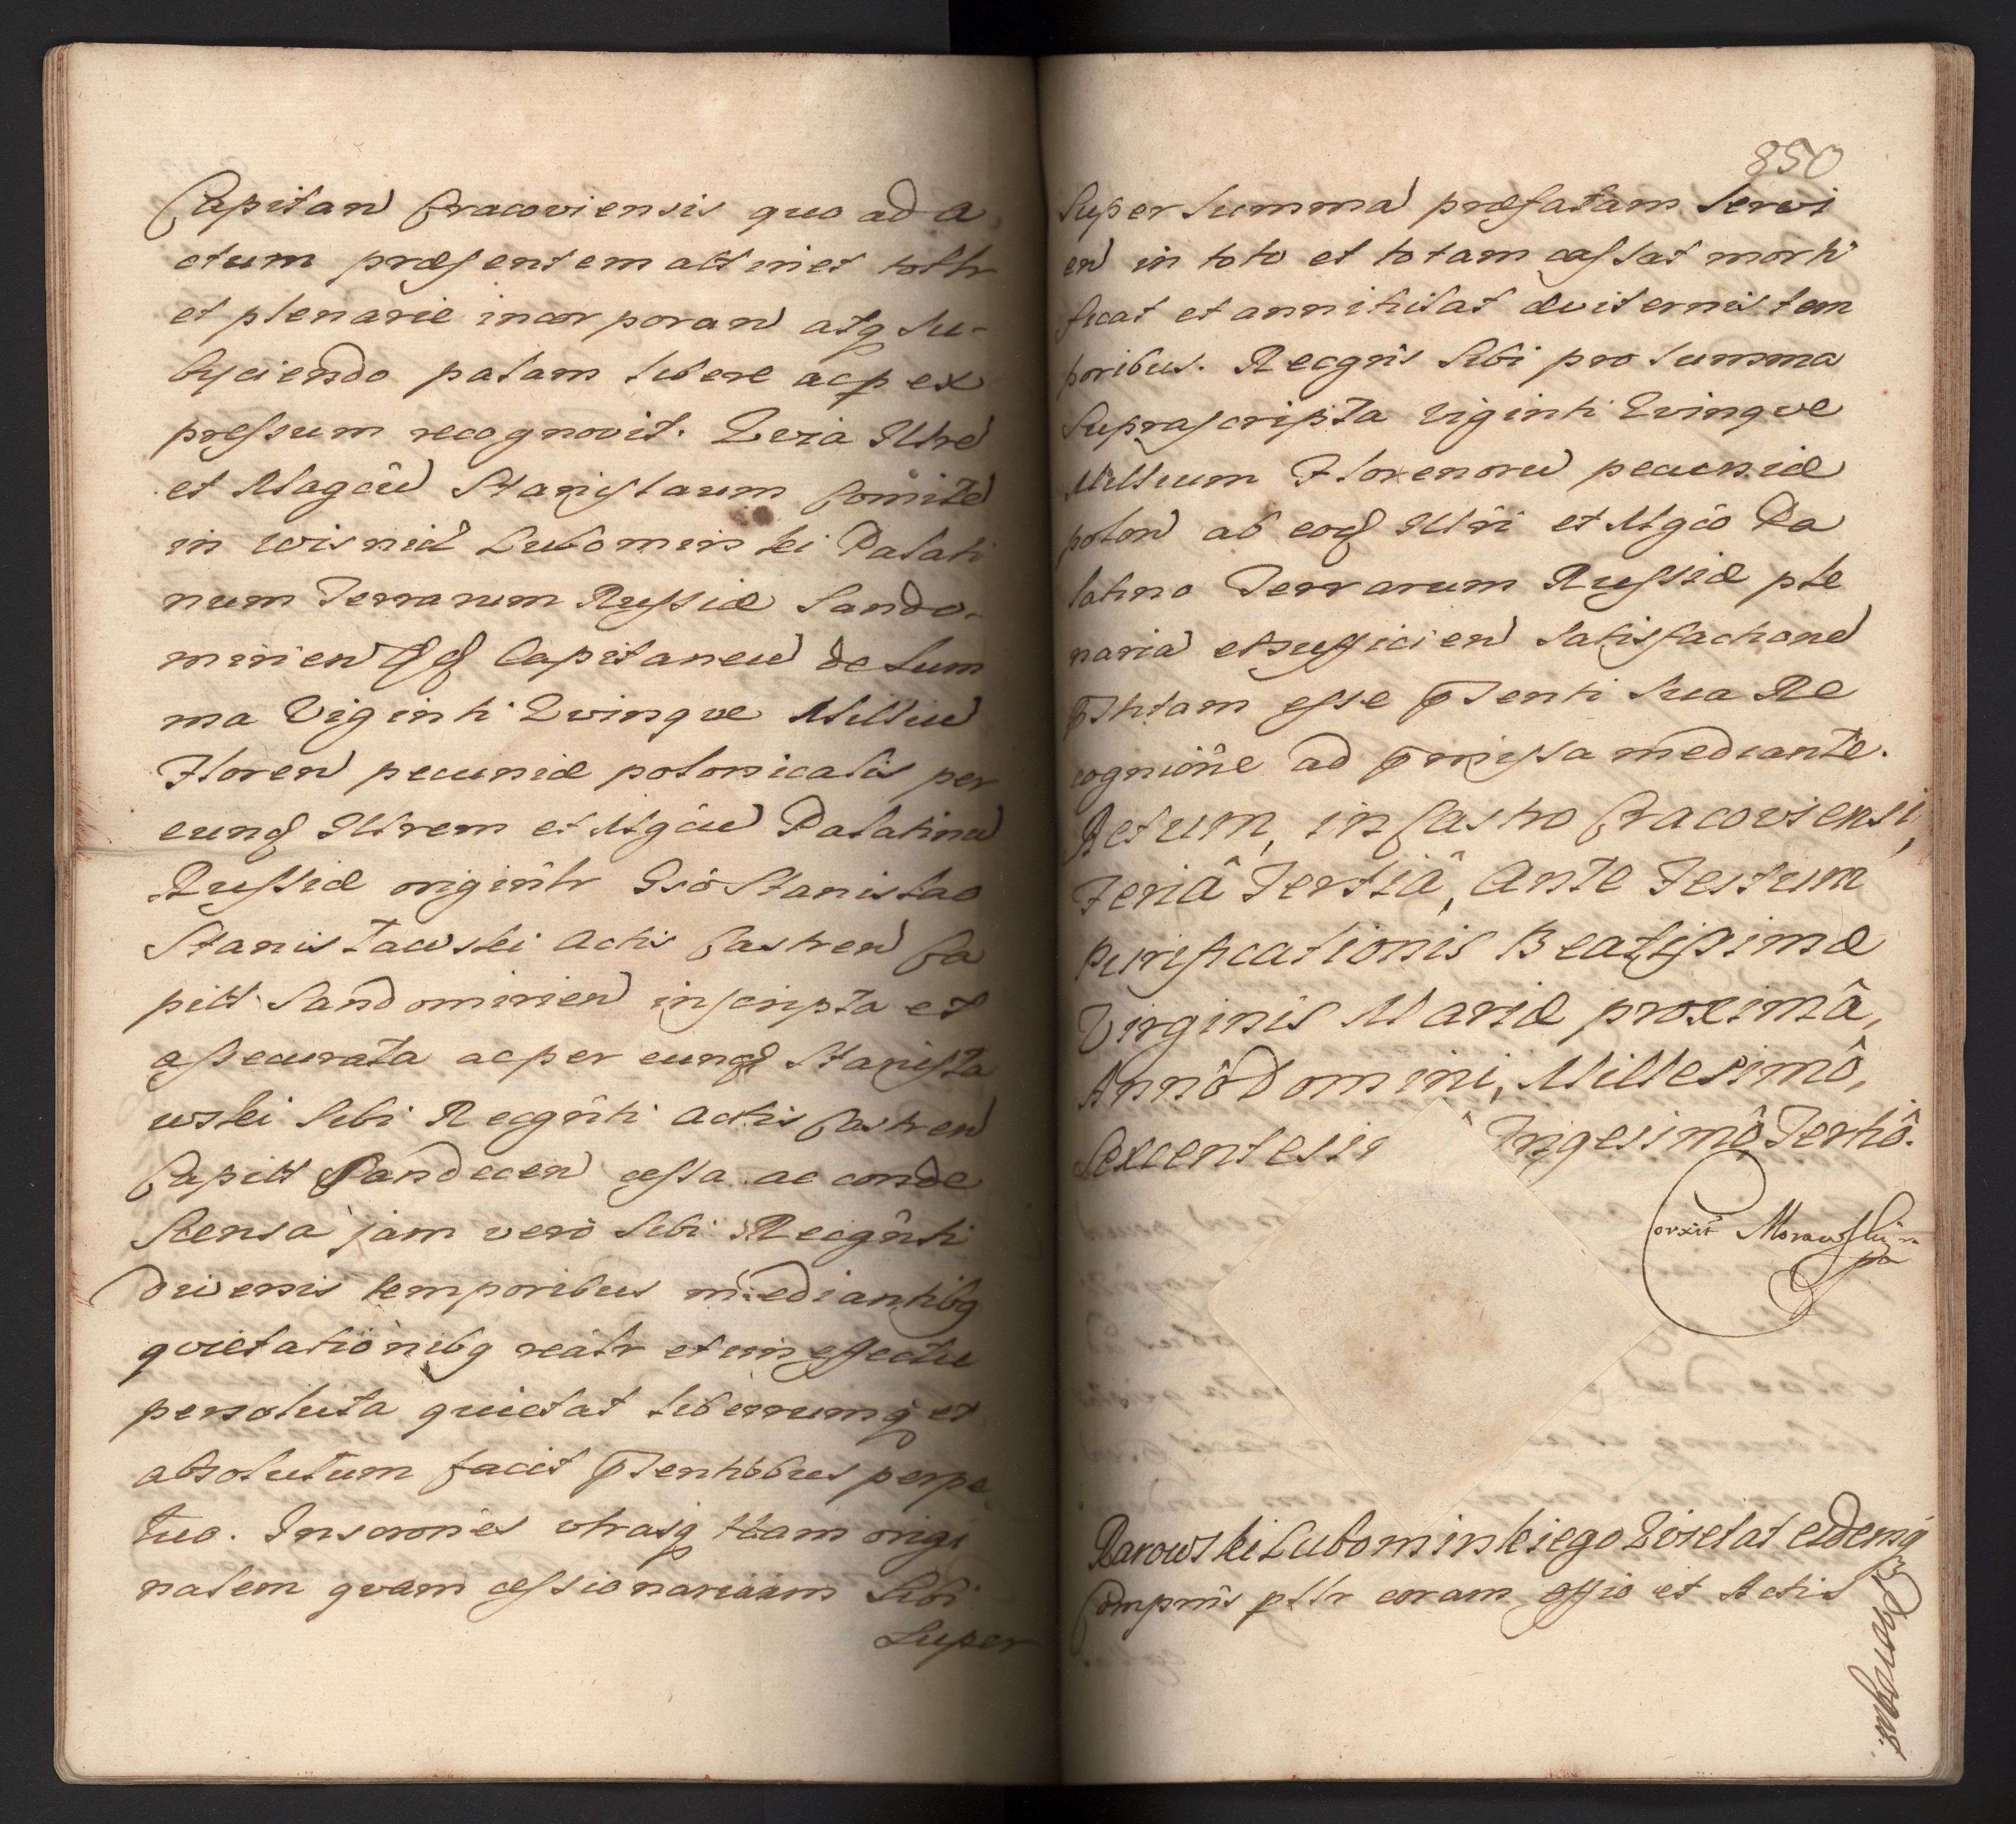 Capitan Cracoviensis quo ad a
ctum præsentem attinet totlr
et plenarie incorporan atq su-
byciendo palam libere acp ex
pressum recognovit. Qvia Illre
et Magcu Stanislaum Comite
in Wisnic Lubomirski Palati
num Terrarum Russiæ Sando-
mirien Capitaneu de sum
ma Viginti Qvinqve Milliu
Floren pecuniæ polonicalis per
eund Illrem et Mgcu Palatinu
Russiæ originlr Gso Stanislao
Stanisławski Actis Castren Ca
pitt Sandomirien inscripta et
assecurata ac per eund Stanisła
wski sibi Recgnti Actis Castren
Capitt Sandecen cessa ac conde
scensa jam vero sibi Recgnti
diversis temporibus mediantibq
qvietationibq realr et in effectu
persoluta quietat liberrumq et
absolutum facit pntentibus perpe
tuo. Inscrones utrasq tam origi
nalem qvam cessionariam sibi
Super
850
Super summa præfatam servi
en in toto et totam cassat morti
ficat et annihilat æviternis tem
poribus. Recgns sibi pro summa
suprascripta Viginti Qvinqve
Millium Florenoru pecuniæ
polon ab eod Illri et Mgco Pa
latino Terrarum Russiæ ple
naria et sufficien satisfactione
esse sua Re
cognione ad pmissa mediante.
Actum, in Castro Cracoviensi,
Feriâ Tertiâ, Ante Festum
Purificationis Beatissimæ
Virginis Mariæ proximâ,
Annô Domini, Millesimô,
Sexcentesi Trigesimô Tertiô.
Corxit Morawski
mpa
Barowski Lubomirskiego Qvietat eidemq
Comprns pslr coram offio et Actis